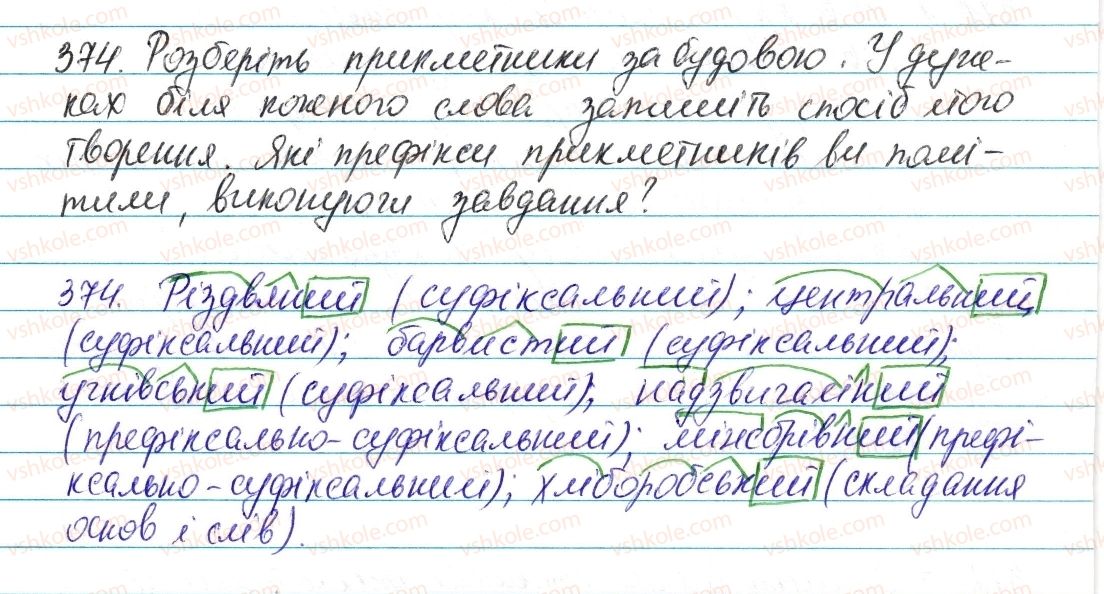 374. Розберіть прикметники за будовою. У дуж-
ках біля кожного слова запишіть спосіб його
творення. Які префікси прикметників ви помі-
тили, виконуючи завдання?
374. Різдвяний (суфіксальний); центральний
(суфіксальний); барвистий (суфіксальний);
учнівський (суфіксальний); надзвичайний
(префіксально-суфіксальний); міжбрівний (префі-
ксально-суфіксальний); хліборобський (складання
основ і слів).